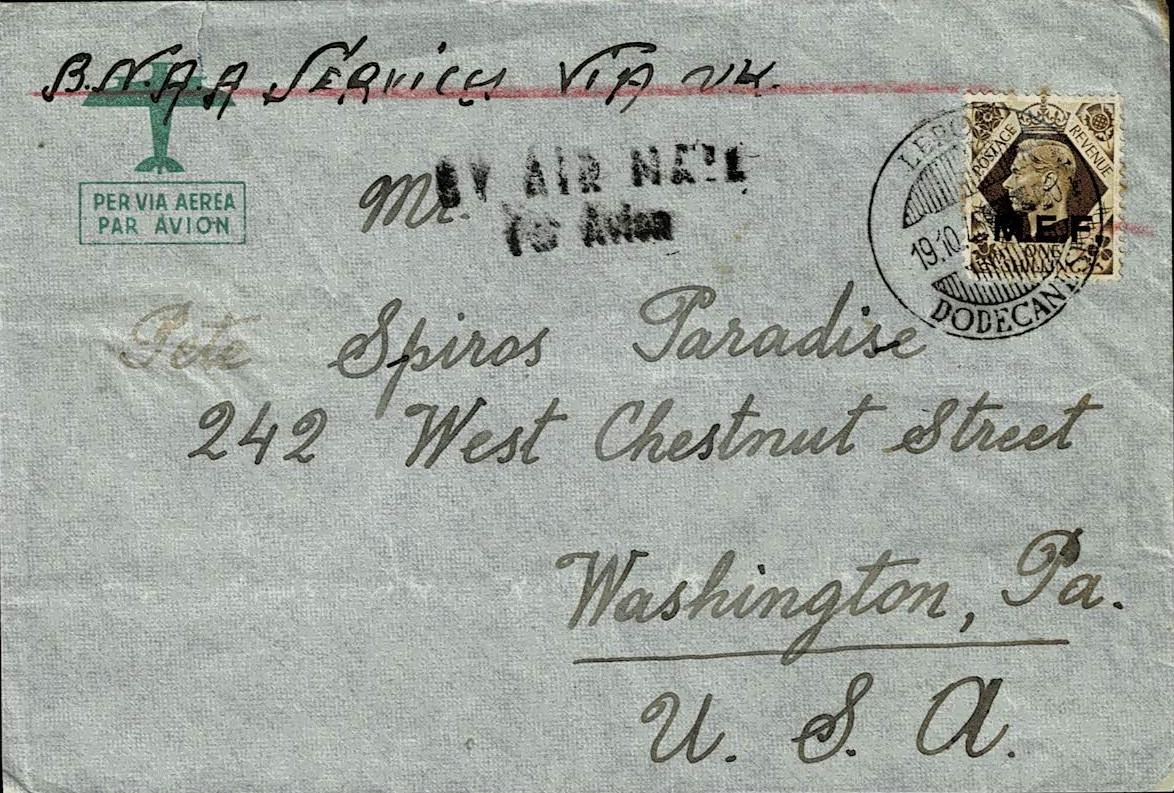 B.N.A.A SERVICE VIA UK.
PER VIA AEREA
PAR AVION
BY AIR MAIL
Par Avion
Mr.
Pete Spiros Paradise
242 West Chestnut Street
Washington, Pa.
U. S. A.
POSTAGE REVENUE
M.E.F.
ONE
SHILLING
19.10.
DODECAN